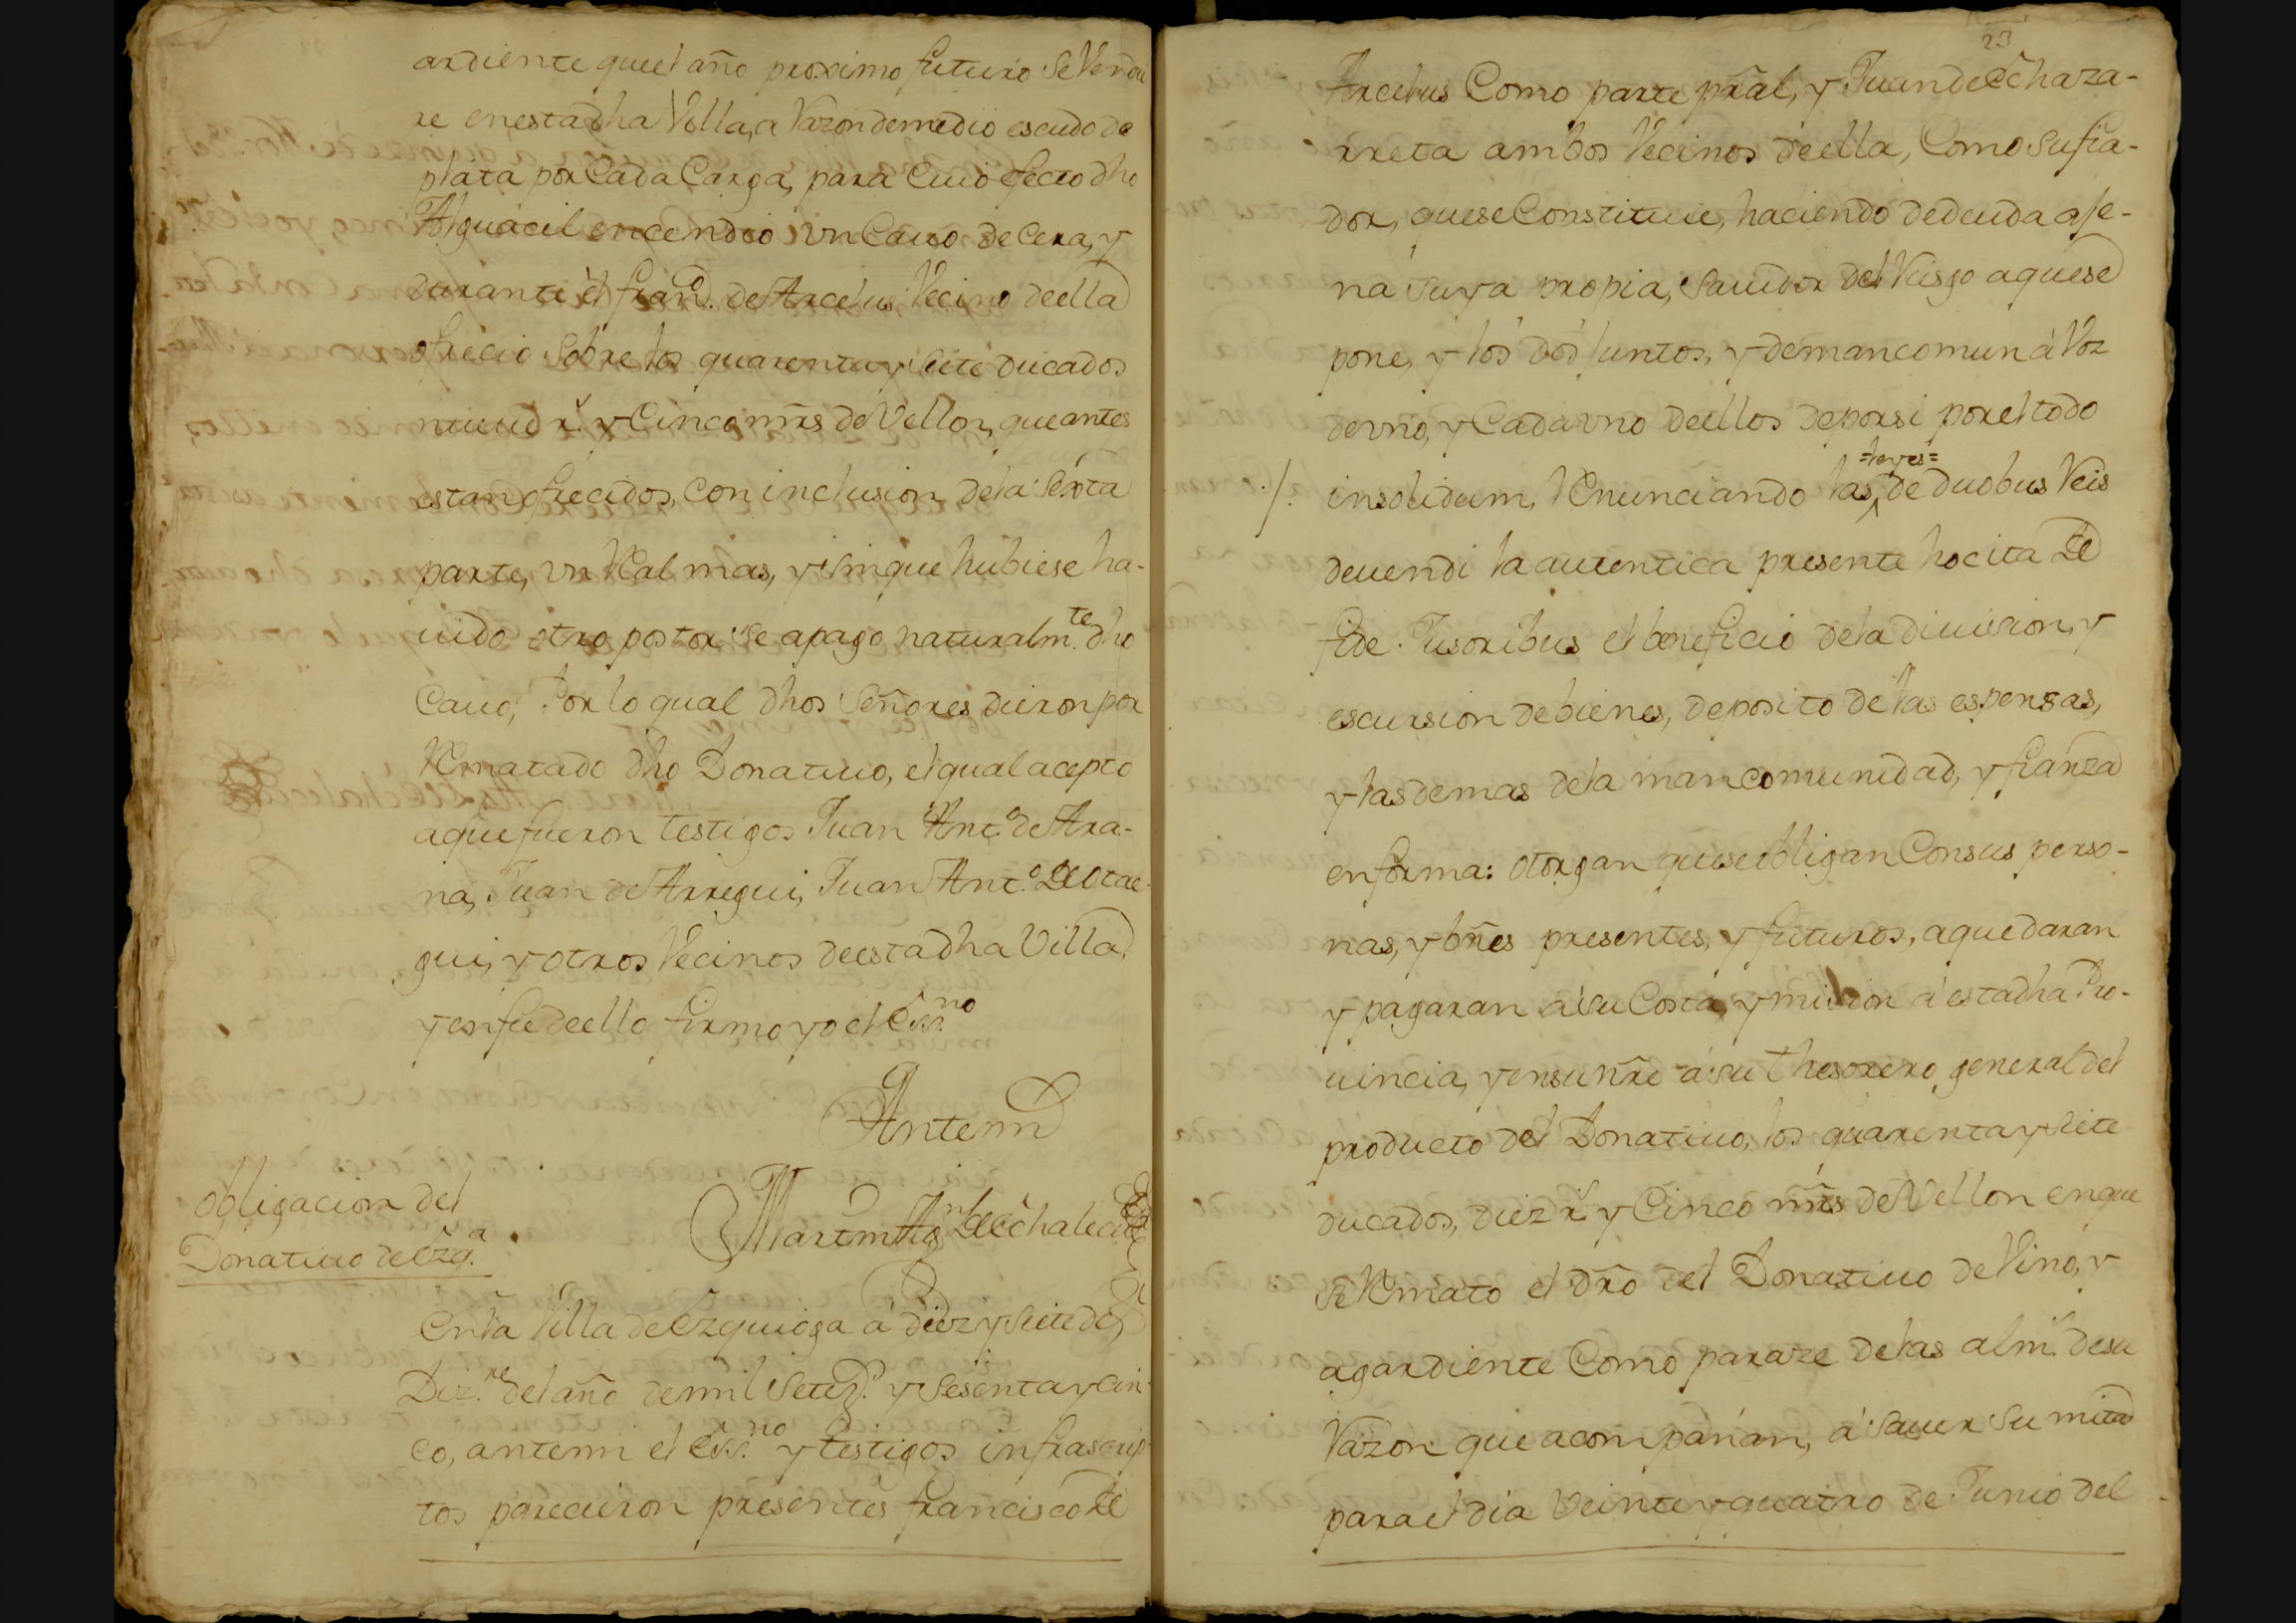 ardiente que el año proximo futuro se Vendie
re en esta dha Villa, a Razon de medio escudo de
plata por Cada Carga, para Cuio efecto dho
Alguacil encendio Vn Cauo de Cera, y
durante el fran.co de Arcelus Vecino de ella
ofrecio sobre los quarenta y siete ducados
nueue r.s y Cinco mrs de Vellon, que antes
estan ofrecidos, con inclusion de la sexta
parte, vn Real mas, y sin que hubiese ha-
uido otro postor se apago naturalm.te dho
Cauo; Por lo qual dhos Señores dieron por
Rematado dho Donatiuo, el qual acepto
a que fueron testigos Juan Ant.o de Ara-
na, Juan de Arregui, Juan Ant.o de Otae-
gui, y otros Vecinos de esta dha Villa
y en fee de ello firmo yo el Ess.no
Antemi
Martin Ag.n de Echalecu
Obligacion del
Donatiuo de Ezq.a
En la Villa de Ezquioga a diez y siete de
Diz.re del año de mil Setez.s y Sesenta y cin-
co, antemi el Ess.no y testigos infrascrip-
tos parecieron presentes francisco de
23
Arcelus Como parte pral, y Juan de Echaza-
rreta ambos Vecinos de ella, Como su fia-
dor, que se Constituie, haciendo de deuda aje-
na suya propia, Sauidor del Riesgo a que se
pone, y los dos Juntos, y de mancomun á Voz
de vno, y Cada vno de ellos de por si por el todo
./. insolidum, Renunciando las =leyes= de duobus Reis
deuendi la autentica presente hocita de
fide Jusoribus el beneficio de la diuision, y
escursion de bienes, deposito de las espensas,
y las demas de la mancomunidad, y fianza
en forma: otorgan que se obligan Con sus perso-
nas, y bnes presentes, y futuros, a que daran
y pagaran á su Costa, y mision á esta dha Pro-
uincia, y en su nre á su thesorero general del
producto del Donatiuo, los quarenta y siete
ducados, diez r.s y Cinco mrs de Vellon en que
se Remato el dro del Donatiuo de Vino, y
agardiente Como paraze de las alm.s de su
Razon que acompañan, á sauer su mitad
para el dia Veinte y quatro de Junio del